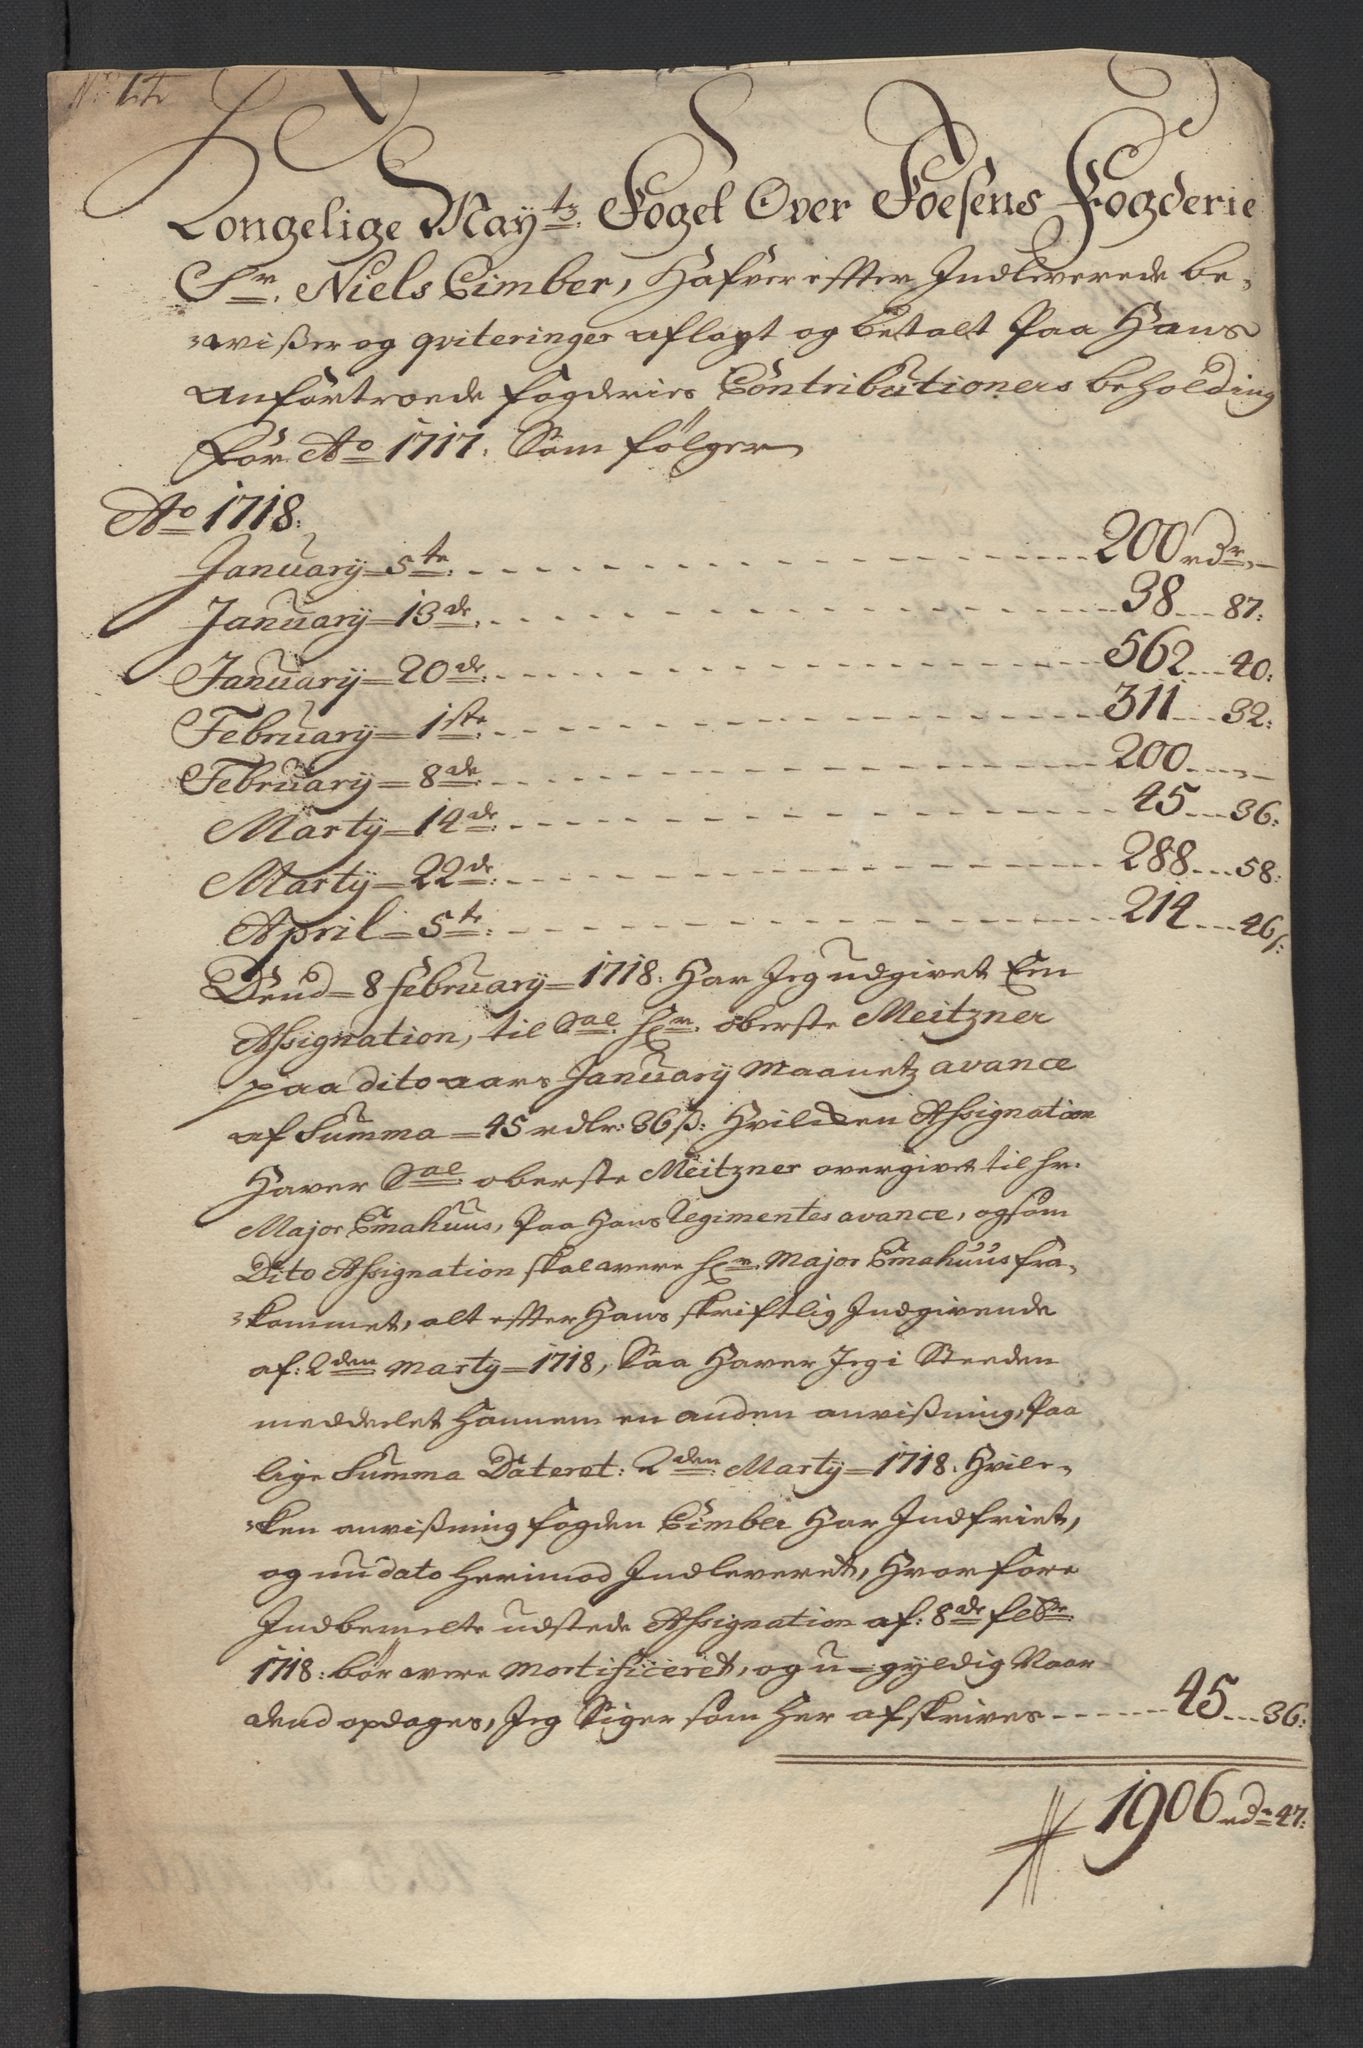 No 14
Kongelige Mayts. Foget Over Foesens Fogderie
Sr. Niels Cimber, Hafver effter Indleverede be-
-vißer og qviteringer aflagt og betalt Paa Hans
anfortroede fogderies Contributioners beholding
For Ao 1717. Som følger
Ao 1718.
January = 5te. 200 rdr. -
January = 13de. 38 87:
January = 20de. 562 40:
February = 1ste. 311 32:
February = 8de. 200 -
Marty = 14de. 45 36:
Marty = 22de. 288 58:
April = 5te. 214 46 ß:
Dend = 8 february = 1718. Har Jeg udgivet Een
Assignation, til Sal. Hr. oberste Meitzner
paa dito aars January Maanetz avance
af Summa = 45 rdlr: 36 ß: Hvilcken Assignation
Haver Sal. oberste Meitzner overgivet til Hr.
Major Emahuus, Paa Hans Regimentes avance, og som
Dito Assignation skal være Hr. Major Emahuus fra-
-kommet, alt effter Hans skriftlig Indgivende
af: 2den Marty = 1718, Saa Haver Jeg i Steeden
meddelet Hannem en anden anvißning, Paa
lige Summa Dateret: 2den Marty = 1718. Hvile-
-ken anvißning fogden Cimber Har Indfriet,
og nu dato herimod Indleveret, Hvorfore
Indbemelte udstede Assignation af: 8de febr.
1718: bör være Mortificeret, og u-gyldig Naar
dend opdages, Jeg Siger som Her afskrives 45 36:
1906 rdr 47: